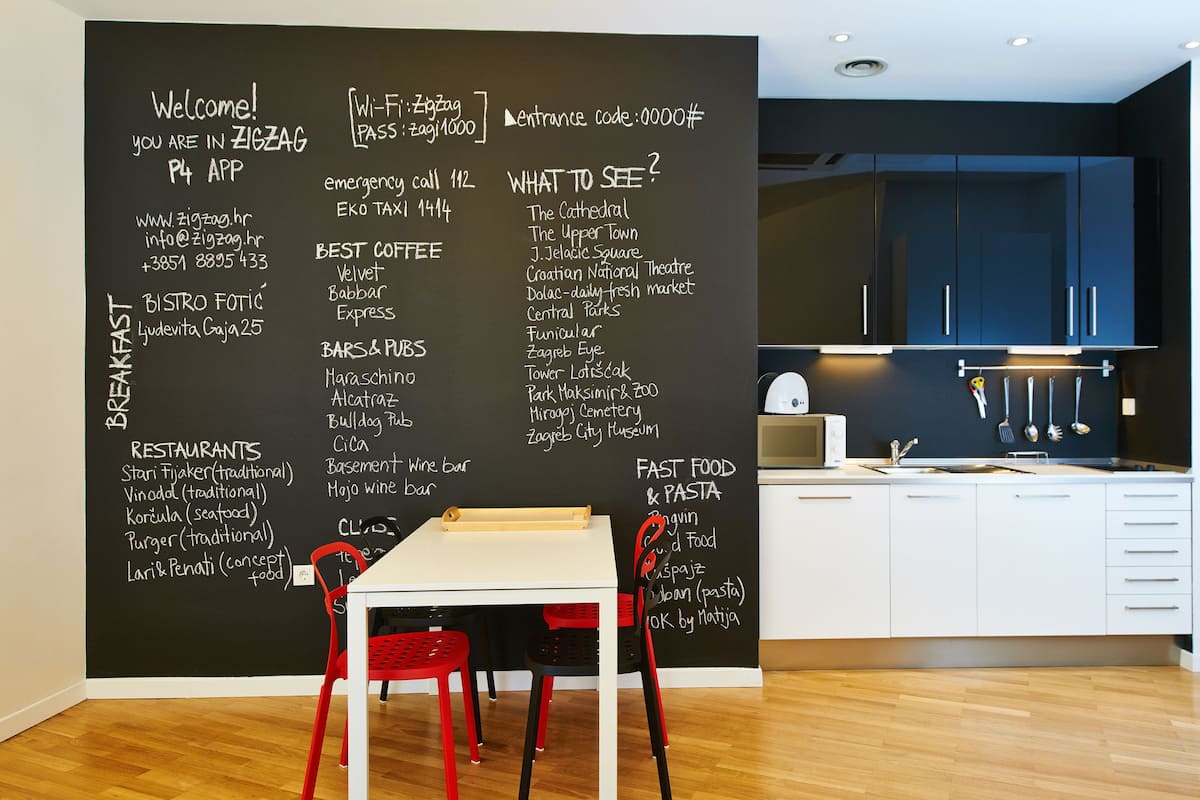 Welcome!
YOU ARE IN ZIGZAG
P4 APP
www.zigzag.hr
info@zigzag.hr
+3851 8895 433
BREAKFAST
BISTRO FOTIĆ
Ljudevita Gaja 25
RESTAURANTS
Stari Fijaker (traditional)
Vinodol (traditional)
Korčula (seafood)
Purger (traditional)
Lari & Penati (concept
food)
Wi-Fi: ZigZag
PASS: zagi1000
emergency call 112
EKO TAXI 1414
BEST COFFEE
Velvet
Babbar
Express
BARS & PUBS
Maraschino
Alcatraz
Bulldog Pub
CiCa
Basement Wine bar
Mojo wine bar
entrance code: 0000#
WHAT TO SEE?
The Cathedral
The Upper Town
J. Jelacic Square
Croatian National Theatre
Dolac-daily-fresh market
Central Parks
Funicular
Zagreb Eye
Tower Lotršćak
Park Maksimir & ZOO
Mirogoj Cemetery
Zagreb City Museum
FAST FOOD
& PASTA
Food
(pasta)
by Matija